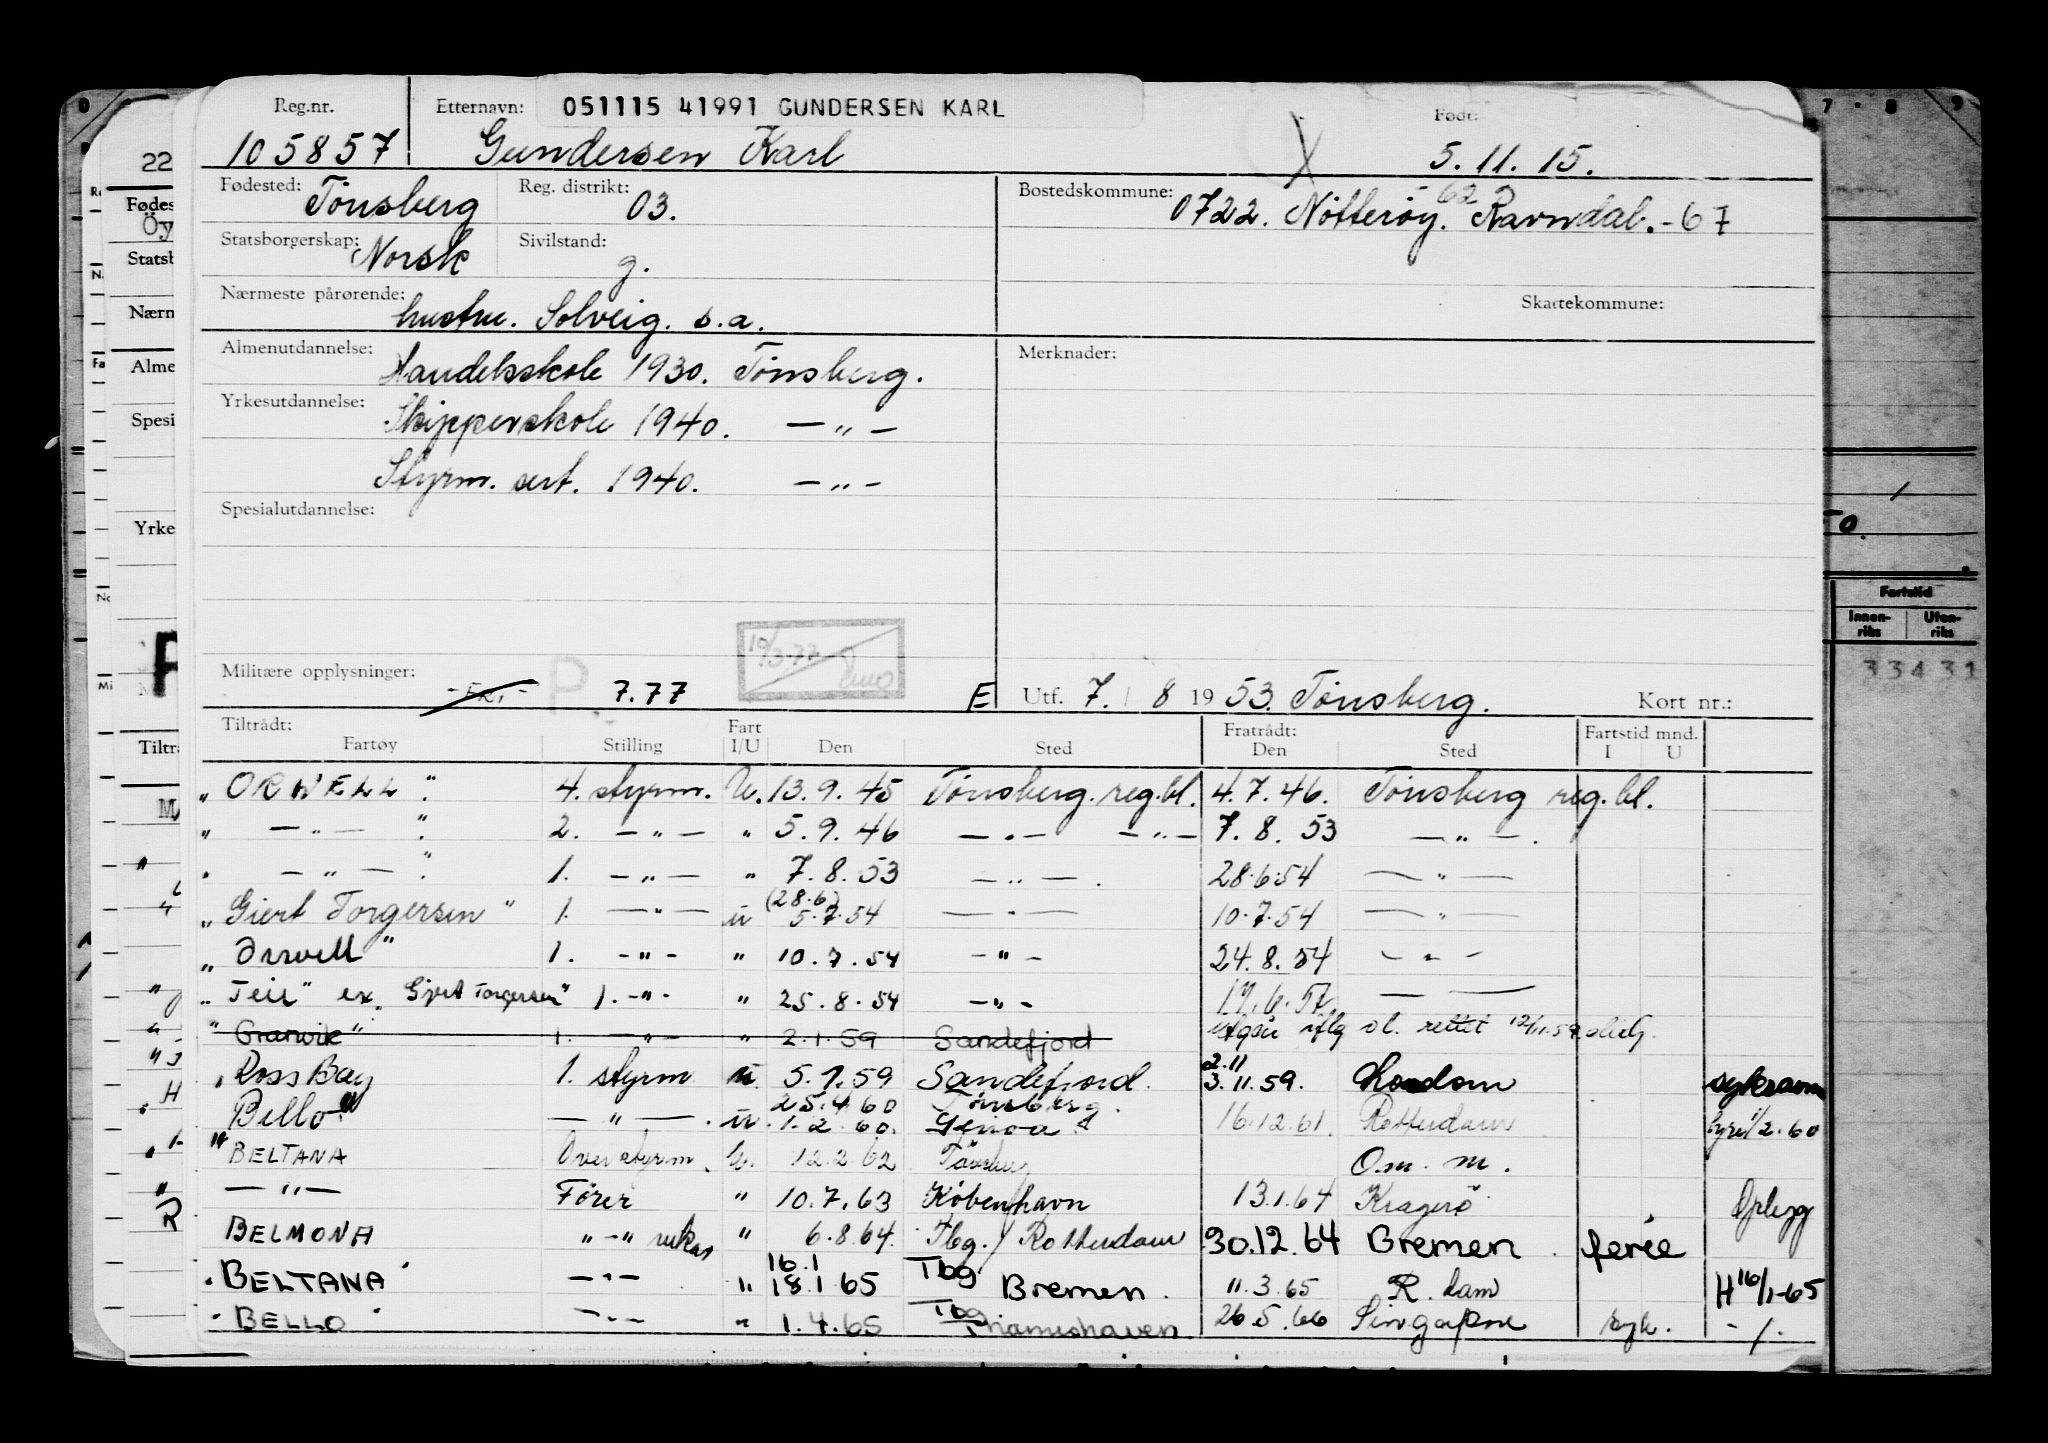 Reg.nr. Etternavn: 051115 41991 GUNDERSEN KARL Født:
105857 Gundersen Karl X 5.11.15.
Fødested: Tønsberg Reg. distrikt: 03. Bostedskommune: 0722. Nøtterøy. -62 Ravndal. -67
Statsborgerskap: Norsk Sivilstand: g.
Nærmeste pårørende: hustru. Solveig. s.a. Skattekommune:
Almenutdannelse: Handelsskole 1930. Tønsberg. Merknader:
Yrkesutdannelse: Skipperskole 1940. — " —
Styrm. sert. 1940. — " —
Spesialutdannelse:
Militære opplysninger: P 7.77 E Utf. 7. / 8 1953. Tønsberg. Kort nr.:
Tiltrådt: Fart Fratrådt: Fartstid mnd.
Fartøy Stilling I/U Den Sted Den Sted I U
"ORWELL" 4. styrm. U. 13.9.45 Tønsberg. reg.bl. 4.7.46. Tønsberg reg.bl.
" — " — " 2. — " — " 5.9.46 — " — — " — 7.8.53 — " — .
" — " — " 1. — " — " 7.8.53 — " — . 28.6.54 — " —
"Giert Torgersen" 1. — " — u (28.6) 5.7.54 — " — 10.7.54 — " —
"Orwell" 1. - " - " 10.7.54 - " - 24.8.54 - " -
"Teie" ex. "Gjert Torgersen" 1. - " - " 25.8.54 - " -
"Granvik" 1. — " — " 2.1.59 Sandefjord rettet 12/11.59
"Ross Bay 1. styrm u. 5.1.59 Sandefjord. 2.11 3.11.59. London
"Bello" — " — . u. 25.4.60 1.2.60. Tønsberg. Genoa 16.12.61. Rotterdam 1/2.60
"BELTANA Overstyrm. U. 12.2.62 Tønsberg Om. m.
— " — Fører " 10.7.63 København 13.1.64 Kragerø Opplegg
BELMONA " - " vikar " 6.8.64. Tbg. / Rotterdam 30.12.64 Bremen . ferie
"BELTANA" — " — " 16.1 18.1.65 Tbg Bremen. 11.3.65 R.dam H 16/1-65
"BELLO" — " — " 1.4.65 Tbg 26.5.66 Singapore syk. - / .
22
Fødes
Öy
Statsb
Nærn
Alme
Spesi
Yrke
Tiltr
7 · 8 · 9
Fartstid
Innen-riks Uten-riks
33431